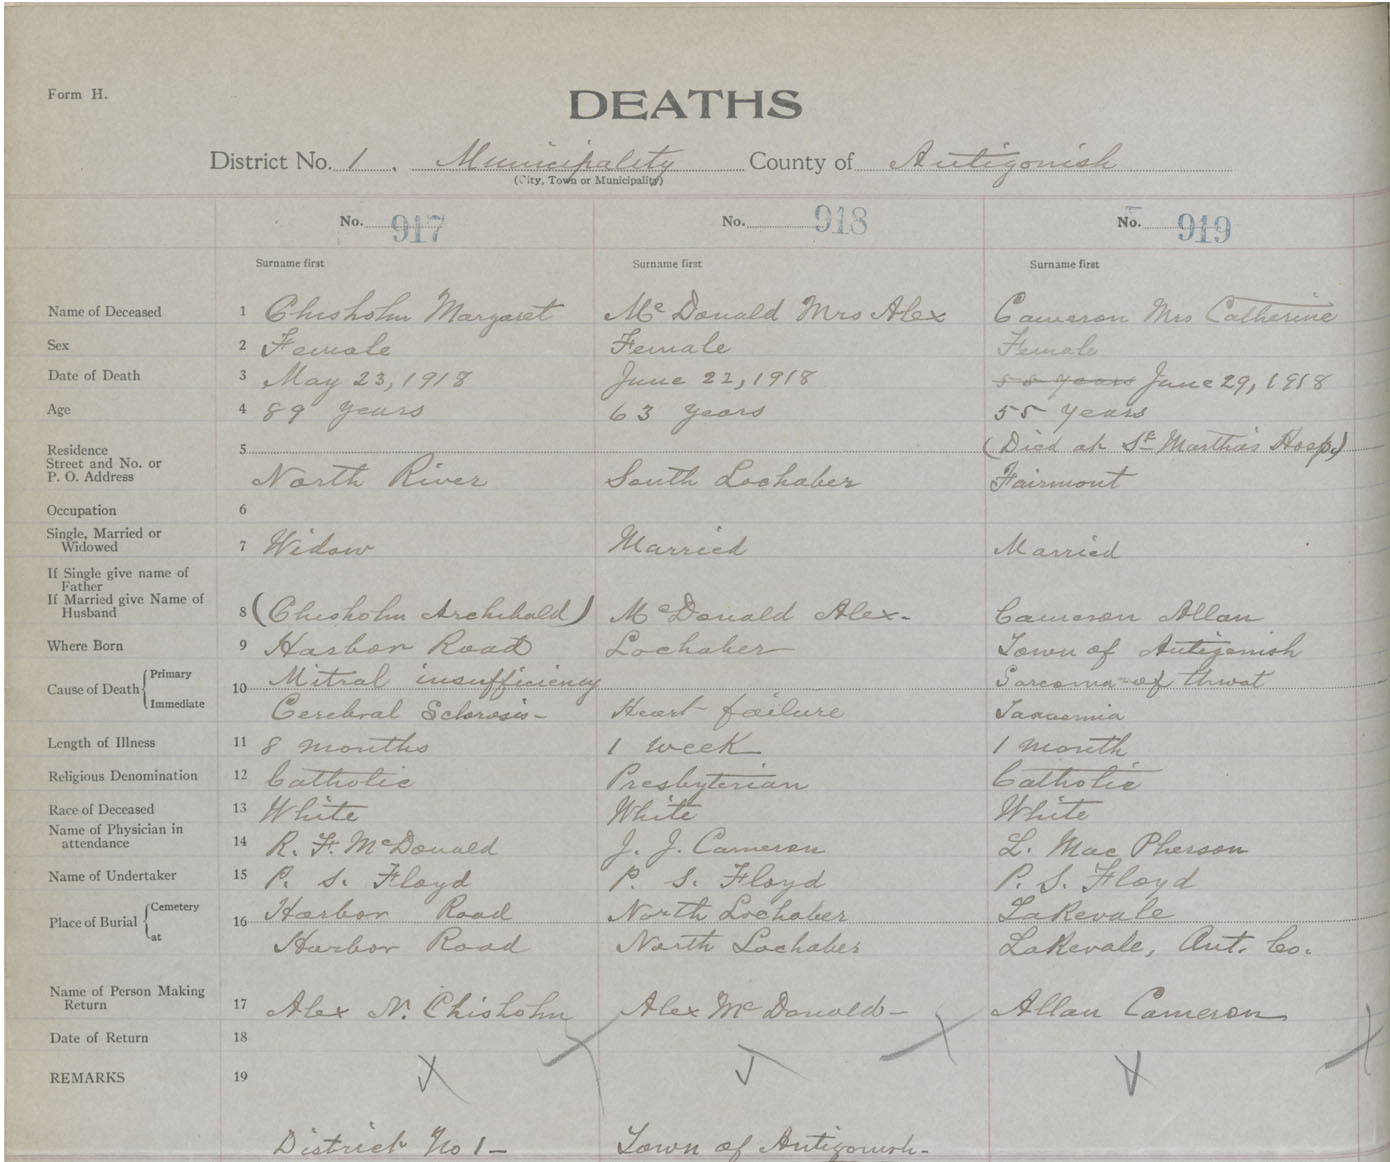 Form H.
DEATHS
District No. 1, Municipality County of Antigonish
(City, Town or Municipality)
No. 917 No. 918 No. 919
Surname first Surname first Surname first
Name of Deceased 1 Chisholm Margaret McDonald Mrs Alex Cameron Mrs Catherine
Sex 2 Female Female Female
Date of Death 3 May 23, 1918 June 22, 1918 55 years June 29, 1918
Age 4 89 years 63 years 55 years
Residence 5 (Died at St Martha's Hosp.)
Street and No. or
P. O. Address North River South Lochaber Fairmont
Occupation 6
Single, Married or
Widowed 7 Widow Married Married
If Single give name of
Father
If Married give Name of
Husband 8 (Chisholm Archibald) McDonald Alex- Cameron Allan
Where Born 9 Harbor Road Lochaber Town of Antigonish
Cause of Death Primary 10 Mitral insufficiency Sarcoma of throat
Immediate Cerebral Sclerosis- Heart failure
Length of Illness 11 8 months 1 week 1 month
Religious Denomination 12 Catholic Presbyterian Catholic
Race of Deceased 13 White White White
Name of Physician in
attendance 14 R. F. McDonald J. J. Cameron L. MacPherson
Name of Undertaker 15 P. S. Floyd P. S. Floyd P. S. Floyd
Place of Burial Cemetery 16 Harbor Road North Lochaber Lakevale
at Harbor Road North Lochaber Lakevale, Ant. Co.
Name of Person Making
Return 17 Alex N. Chisholm Alex McDonald- Allan Cameron
Date of Return 18
REMARKS 19
District No 1- Town of Antigonish-